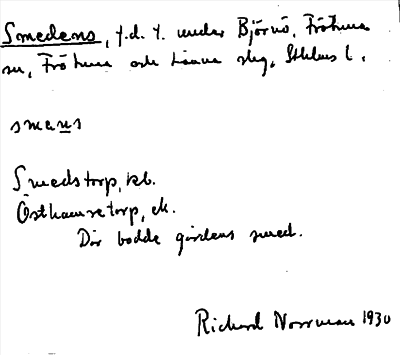 Smedens, f.d. t. under Björnö, Frötuna
sn, Frötuna och Länna slg, Sthlms l.
smens
Smedstorp, kb.
Östhamretorp, ek.
Där bodde gårdens smed.
Richard Norrman 1930